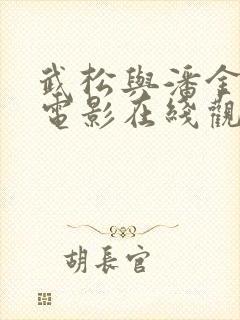 武松與潘金
電影在綫觀
胡長官